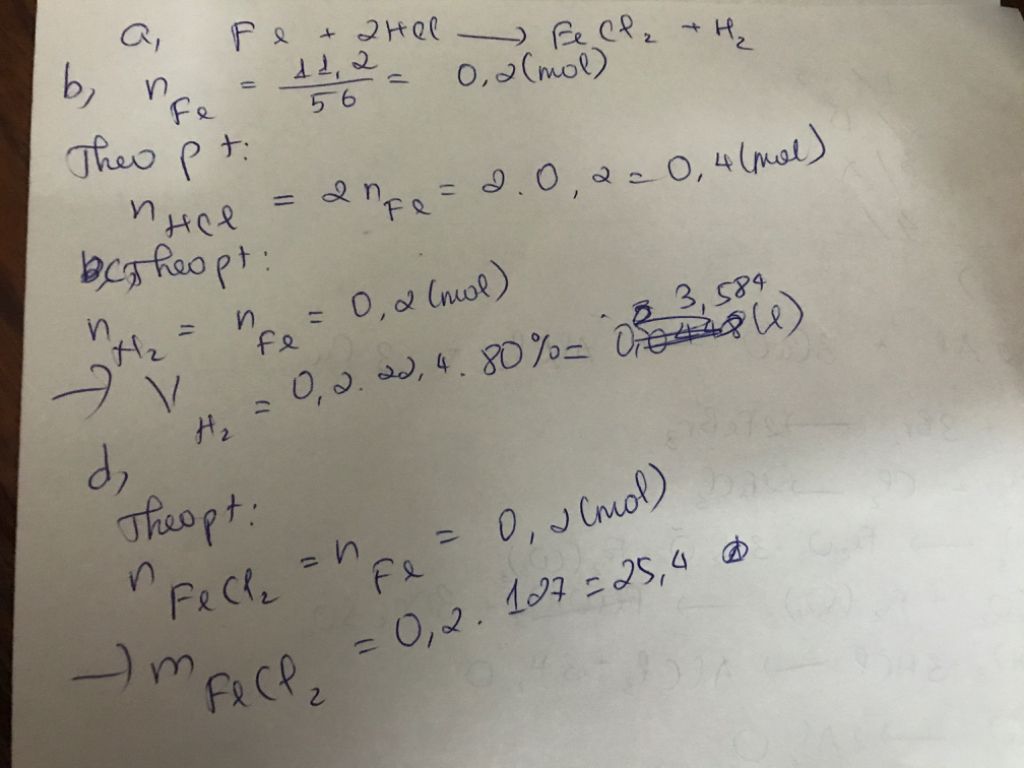 a, Fe + 2HCl → FeCl₂ + H₂
b, n Fe = 11,2/56 = 0,2 (mol)
Theo pt:
n HCl = 2 n Fe = 2 . 0,2 = 0,4 (mol)
c, Theo pt:
n H₂ = n Fe = 0,2 (mol)
→ V H₂ = 0,2 . 22,4 . 80% = 3,584 (l)
d,
Theo pt:
n FeCl₂ = n Fe = 0,2 (mol)
→ m FeCl₂ = 0,2 . 127 = 25,4